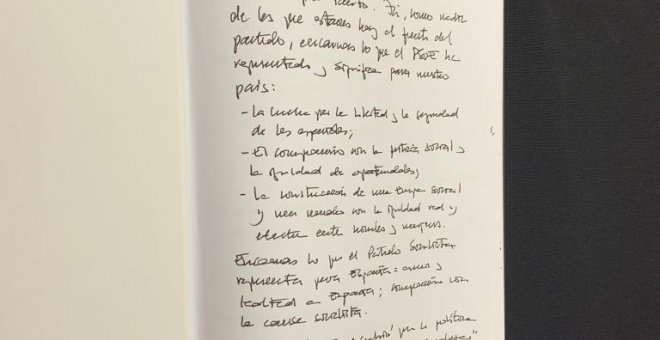 por cierto. Tú, como nadie
de los que estamos hoy al frente del
partido, encarnas lo que el PSOE ha
representado y significa para nuestro
país:
- La lucha por la libertad y la seguridad
de los españoles;
- El compromiso con la justicia social y
la igualdad de oportunidades;
- La construcción de una Europa social
y con la igualdad real y
efectiva entre hombres y mujeres.
Encarnas lo que el Partido Socialista
representa para España: amor y
lealtad a España; compromiso con
la causa socialista.
por la política